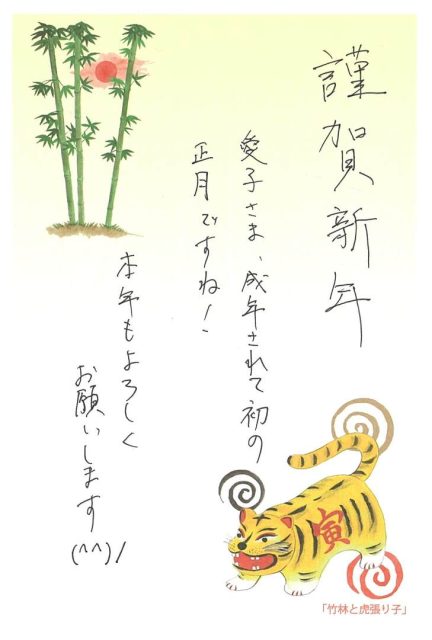 謹賀新年
愛子さま、成年されて初の
正月ですね!
本年もよろしく
お願いします
(^^)/
寅
「竹林と虎張り子」